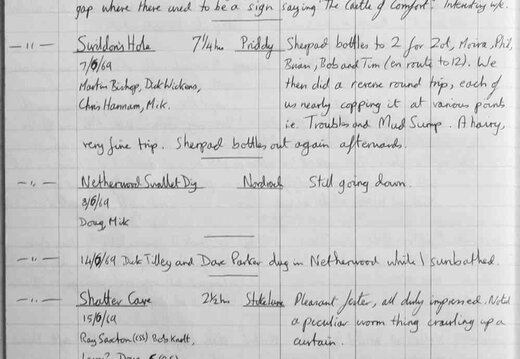 gap where there used to be a sign saying 'The Castle of Comfort'. Interesting w/e.
— " — Swildon's Hole 7¼ hrs Priddy Sherpad bottles to 2 for Zot, Moira, Phil,
7/6/69 Brian, Bob and Tim (en route to 12). We
Martin Bishop, Dick Wickens, then did a reverse round trip, each of
Chris Hannam, Mik. us nearly copping it at various points
i.e. Troubles and Mud Sump. A hairy,
very fine trip. Sherpad bottles out again afterwards.
— " — Netherwood Swallet Dig Nordrach Still going down.
8/6/69
Doug, Mik
— " — 14/6/69 Dick Tilley and Dave Parker dug in Netherwood while I sunbathed.
— " — Shatter Cave 2½ hrs Stoke Lane Pleasant , all duly impressed. Noted
15/6/69 a peculiar worm thing crawling up a
Ray Saxton (CSS) Bob Knott, curtain.